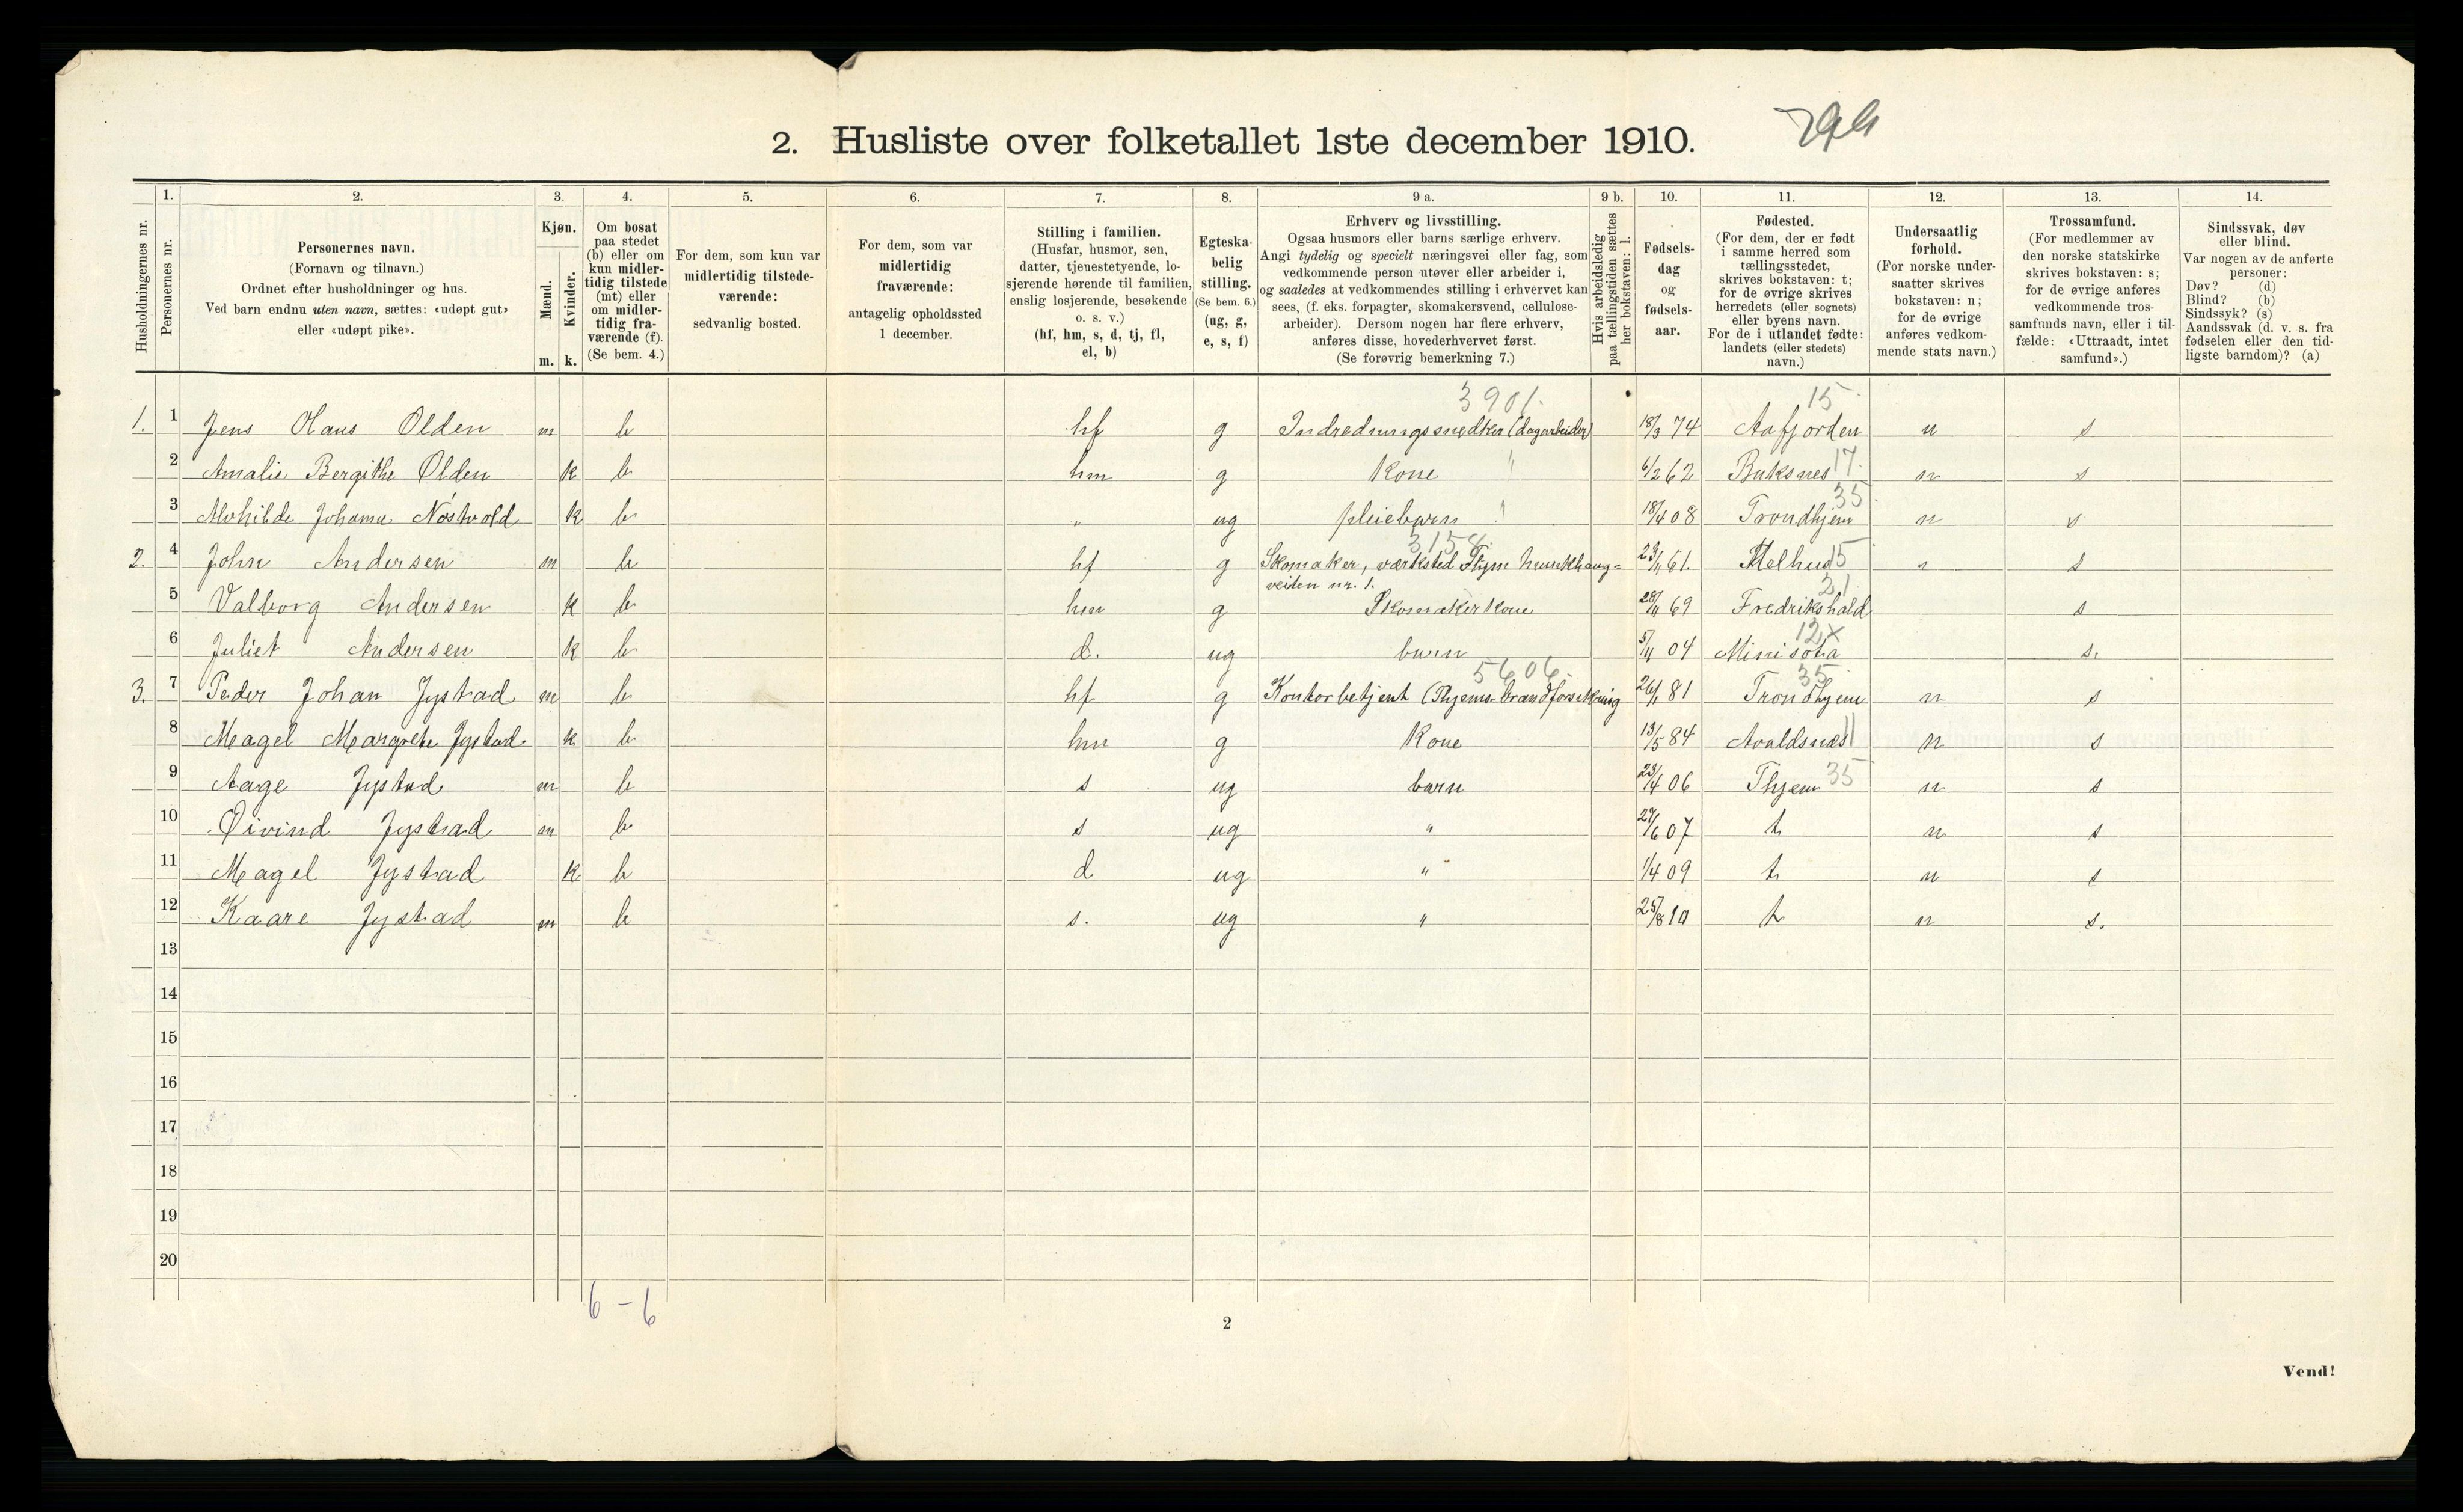 2. Husliste over folketallet 1ste december 1910.
Husholdningernes nr.
1. Personernes nr.
2. Personernes navn. (Fornavn og tilnavn.) Ordnet efter husholdninger og hus. Ved barn endnu uten navn, sættes: «udøpt gut» eller «udøpt pike».
3. Kjøn. Mænd. m. Kvinder. k.
4. Om bosat paa stedet (b) eller om kun midlertidig tilstede (mt) eller om midlertidig fraværende (f). (Se bem. 4.)
5. For dem, som kun var midlertidig tilstedeværende: sedvanlig bosted.
6. For dem, som var midlertidig fraværende: antagelig opholdssted 1 december.
7. Stilling i familien. (Husfar, husmor, søn, datter, tjenestetyende, losjerende hørende til familien, enslig losjerende, besøkende o. s. v.) (hf, hm, s, d, tj, fl, el, b)
8. Egteskabelig stilling. (Se bem. 6.) (ug, g, e, s, f)
9 a. Erhverv og livsstilling. Ogsaa husmors eller barns særlige erhverv. Angi tydelig og specielt næringsvei eller fag, som vedkommende person utøver eller arbeider i, og saaledes at vedkommendes stilling i erhvervet kan sees, (f. eks. forpagter, skomakersvend, cellulosearbeider). Dersom nogen har flere erhverv, anføres disse, hovederhvervet først. (Se forøvrig bemerkning 7.)
9 b. Hvis arbeidsledig paa tællingstiden sættes her bokstaven: l.
10. Fødselsdag og fødselsaar.
11. Fødested. (For dem, der er født i samme herred som tællingsstedet, skrives bokstaven: t; for de øvrige skrives herredets (eller sognets) eller byens navn. For de i utlandet fødte: landets (eller stedets) navn.)
12. Undersaatlig forhold. (For norske undersaatter skrives bokstaven: n; for de øvrige anføres vedkommende stats navn.)
13. Trossamfund. (For medlemmer av den norske statskirke skrives bokstaven: s; for de øvrige anføres vedkommende trossamfunds navn, eller i tilfælde: «Uttraadt, intet samfund».)
14. Sindssvak, døv eller blind. Var nogen av de anførte personer: Døv? (d) Blind? (b) Sindssyk? (s) Aandssvak (d. v. s. fra fødselen eller den tidligste barndom)? (a)
3901. 15
1. 1 Jens Olaus Olden m b hf g Indredningssnedker (dagarbeider) 18/3 74 Aafjorden n s
2 Amalie Bergithe Olden k b hm g Kone " 6/2 62 Buksnes 17. n s
35
3 Alvhilde Johanna Nostvold k b " ug pleiebarn " 18/4 08 Trondhjem n s
3158
2. 4 John Andersen m b hf g Skomaker, værksted Thjem Munkhaug- 23/11 61. Melhus 15 n s
veiten nr. 1. 21
5 Valborg Andersen k b hm g Skomakerkone 28/11 69 Fredrikshald s
12 x
6 Juliet Andersen k b d. ug barn 5/11 04 Minisota s.
5606 35
3. 7 Peder Johan Jystad m b hf g Kontorbetjent (Thjems brandforsikring 26/1 81 Trondhjem n s
8 Magel Margrete Jystad k b hm g Kone 13/5 84 Avaldsnæs 11 n s
9 Aage Jystad m b s ug barn 23/4 06 Thjem 35 n s
10 Øivind Jystad m b s ug " 27/6 07 t n s
11 Magel Jystad k b d ug " 1/4 09 t n s
12 Kaare Jystad m b s. ug " 25/8 10 t n s.
13
14
15
16
17
18
19
20
6 - 6
2
Vend!